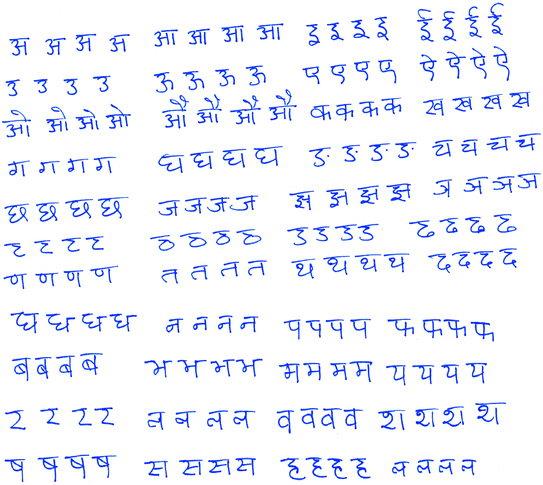 अ अ अ अ आ आ आ आ इ इ इ इ ई ई ई ई
उ उ उ उ ऊ ऊ ऊ ऊ ए ए ए ए ऐ ऐ ऐ ऐ
ओ ओ ओ ओ औ औ औ औ क क क क ख ख ख ख
ग ग ग ग घ घ घ घ ङ ङ ङ ङ च च च च
छ छ छ छ ज ज ज ज झ झ झ झ ञ ञ ञ ञ
ट ट ट ट ठ ठ ठ ठ ड ड ड ड ढ ढ ढ ढ
ण ण ण ण त त त त थ थ थ थ द द द द
ध ध ध ध न न न न प प प प फ फ फ फ
ब ब ब ब भ भ भ भ म म म म य य य य
र र र र ल ल ल ल व व व व श श श श
ष ष ष ष स स स स ह ह ह ह ल ल ल ल